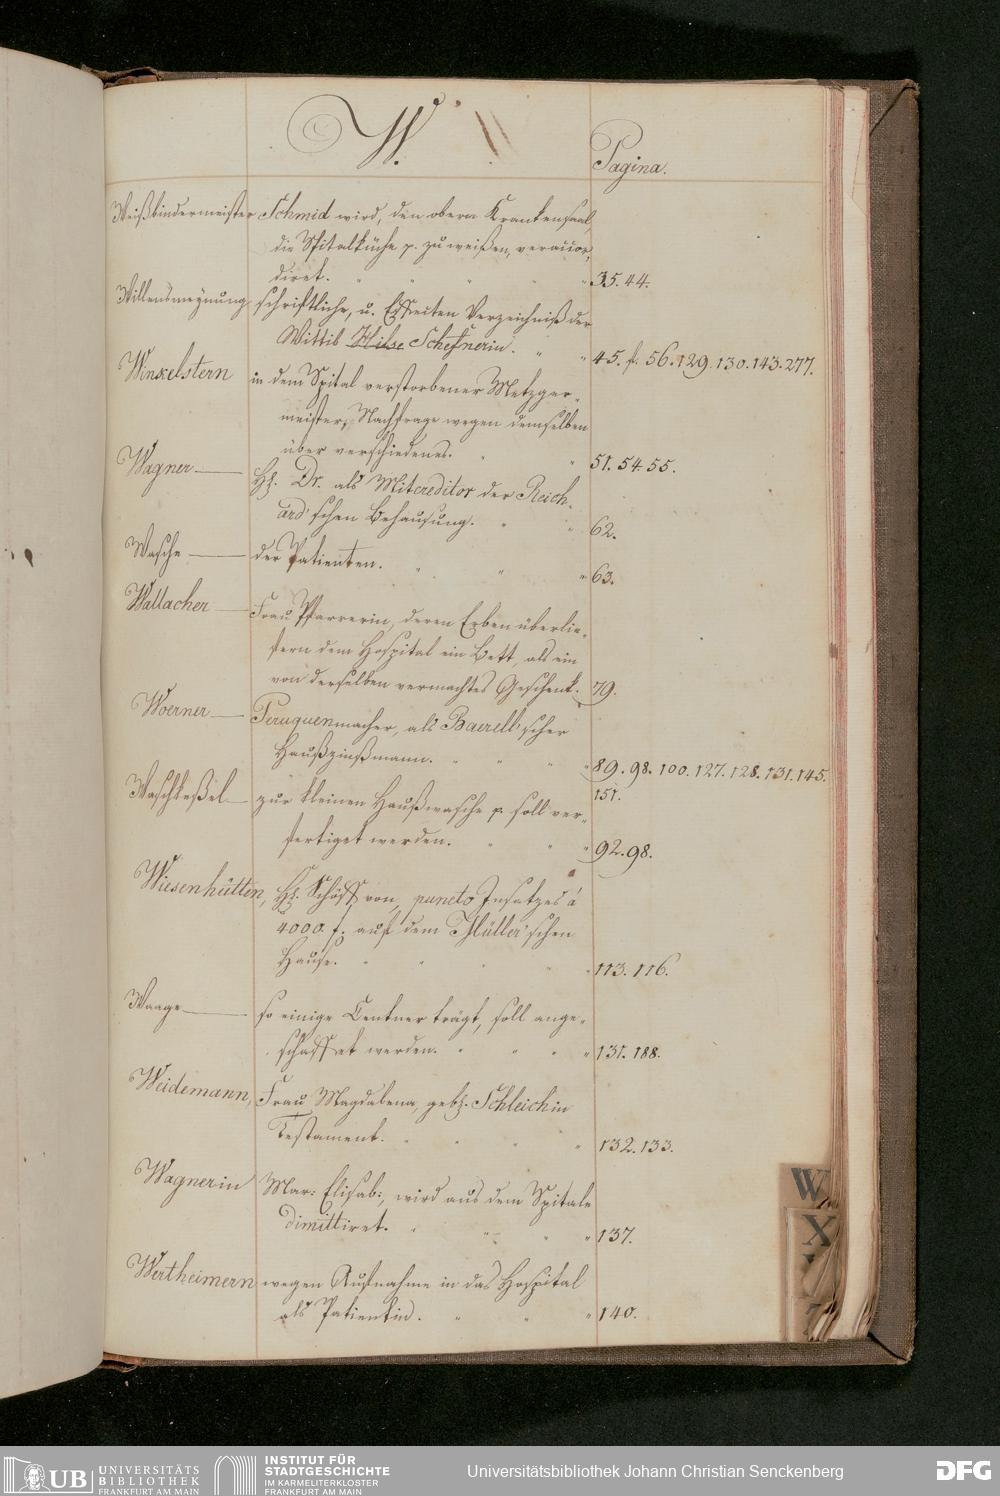 W.
Pagina.
Weißbindermeister Schmid wird, den obern Krankensaal,
die Spitalküche p. zu weißen, veraccor-
diret. " " " " 35. 44.
Willensmeynung schriftliche, u. Effecten Verzeichniß der
Wittib Hilse Schefnerin. " " 45. f. 56. 129. 130. 143. 277.
Winkelstern in dem Spital verstorbener Metzger-
meister, Nachfrage wegen demselben
über verschiedenes. " " 51. 54. 55.
Wagner — H. Dr. als Mitcreditor der Reich-
ard'schen Behausung. " " 62.
Wasche — der Patienten. " " " 63.
Wallacher — Frau Pfarrerin, deren Erben überlie-
fern dem Hospital ein Bett, als ein
von derselben vermachtes Geschenk. 79.
Woerner — Peruquenmacher, als Baerell'scher
Haußzinßmann. " " " " 89. 98. 100. 127. 128. 131. 145.
151.
Waschkeßel — zur kleinen Haußwasche p. soll ver-
fertiget werden. " " " 92. 98.
Wiesenhütten, H. Schöff von, puncto Insatzes à
4000 f. auf dem Müller'schen
Hause. " " " " " 113. 116.
Waage — so einige Centner trägt, soll ange-
schaffet werden. " " " " 131. 188.
Weidemann, Frau Magdalena, geb. Schleichin
Testament. " " " " 132. 133.
Wagnerin Mar: Elisab:, wird aus dem Spitale
dimittiret. " " " " 137.
Wertheimern wegen Aufnahme in das Hospital
als Patientin. " " " 140.
W
X
UB
UNIVERSITÄTS
BIBLIOTHEK
FRANKFURT AM MAIN
INSTITUT FÜR
STADTGESCHICHTE
IM KARMELITERKLOSTER
FRANKFURT AM MAIN
Universitätsbibliothek Johann Christian Senckenberg
DFG